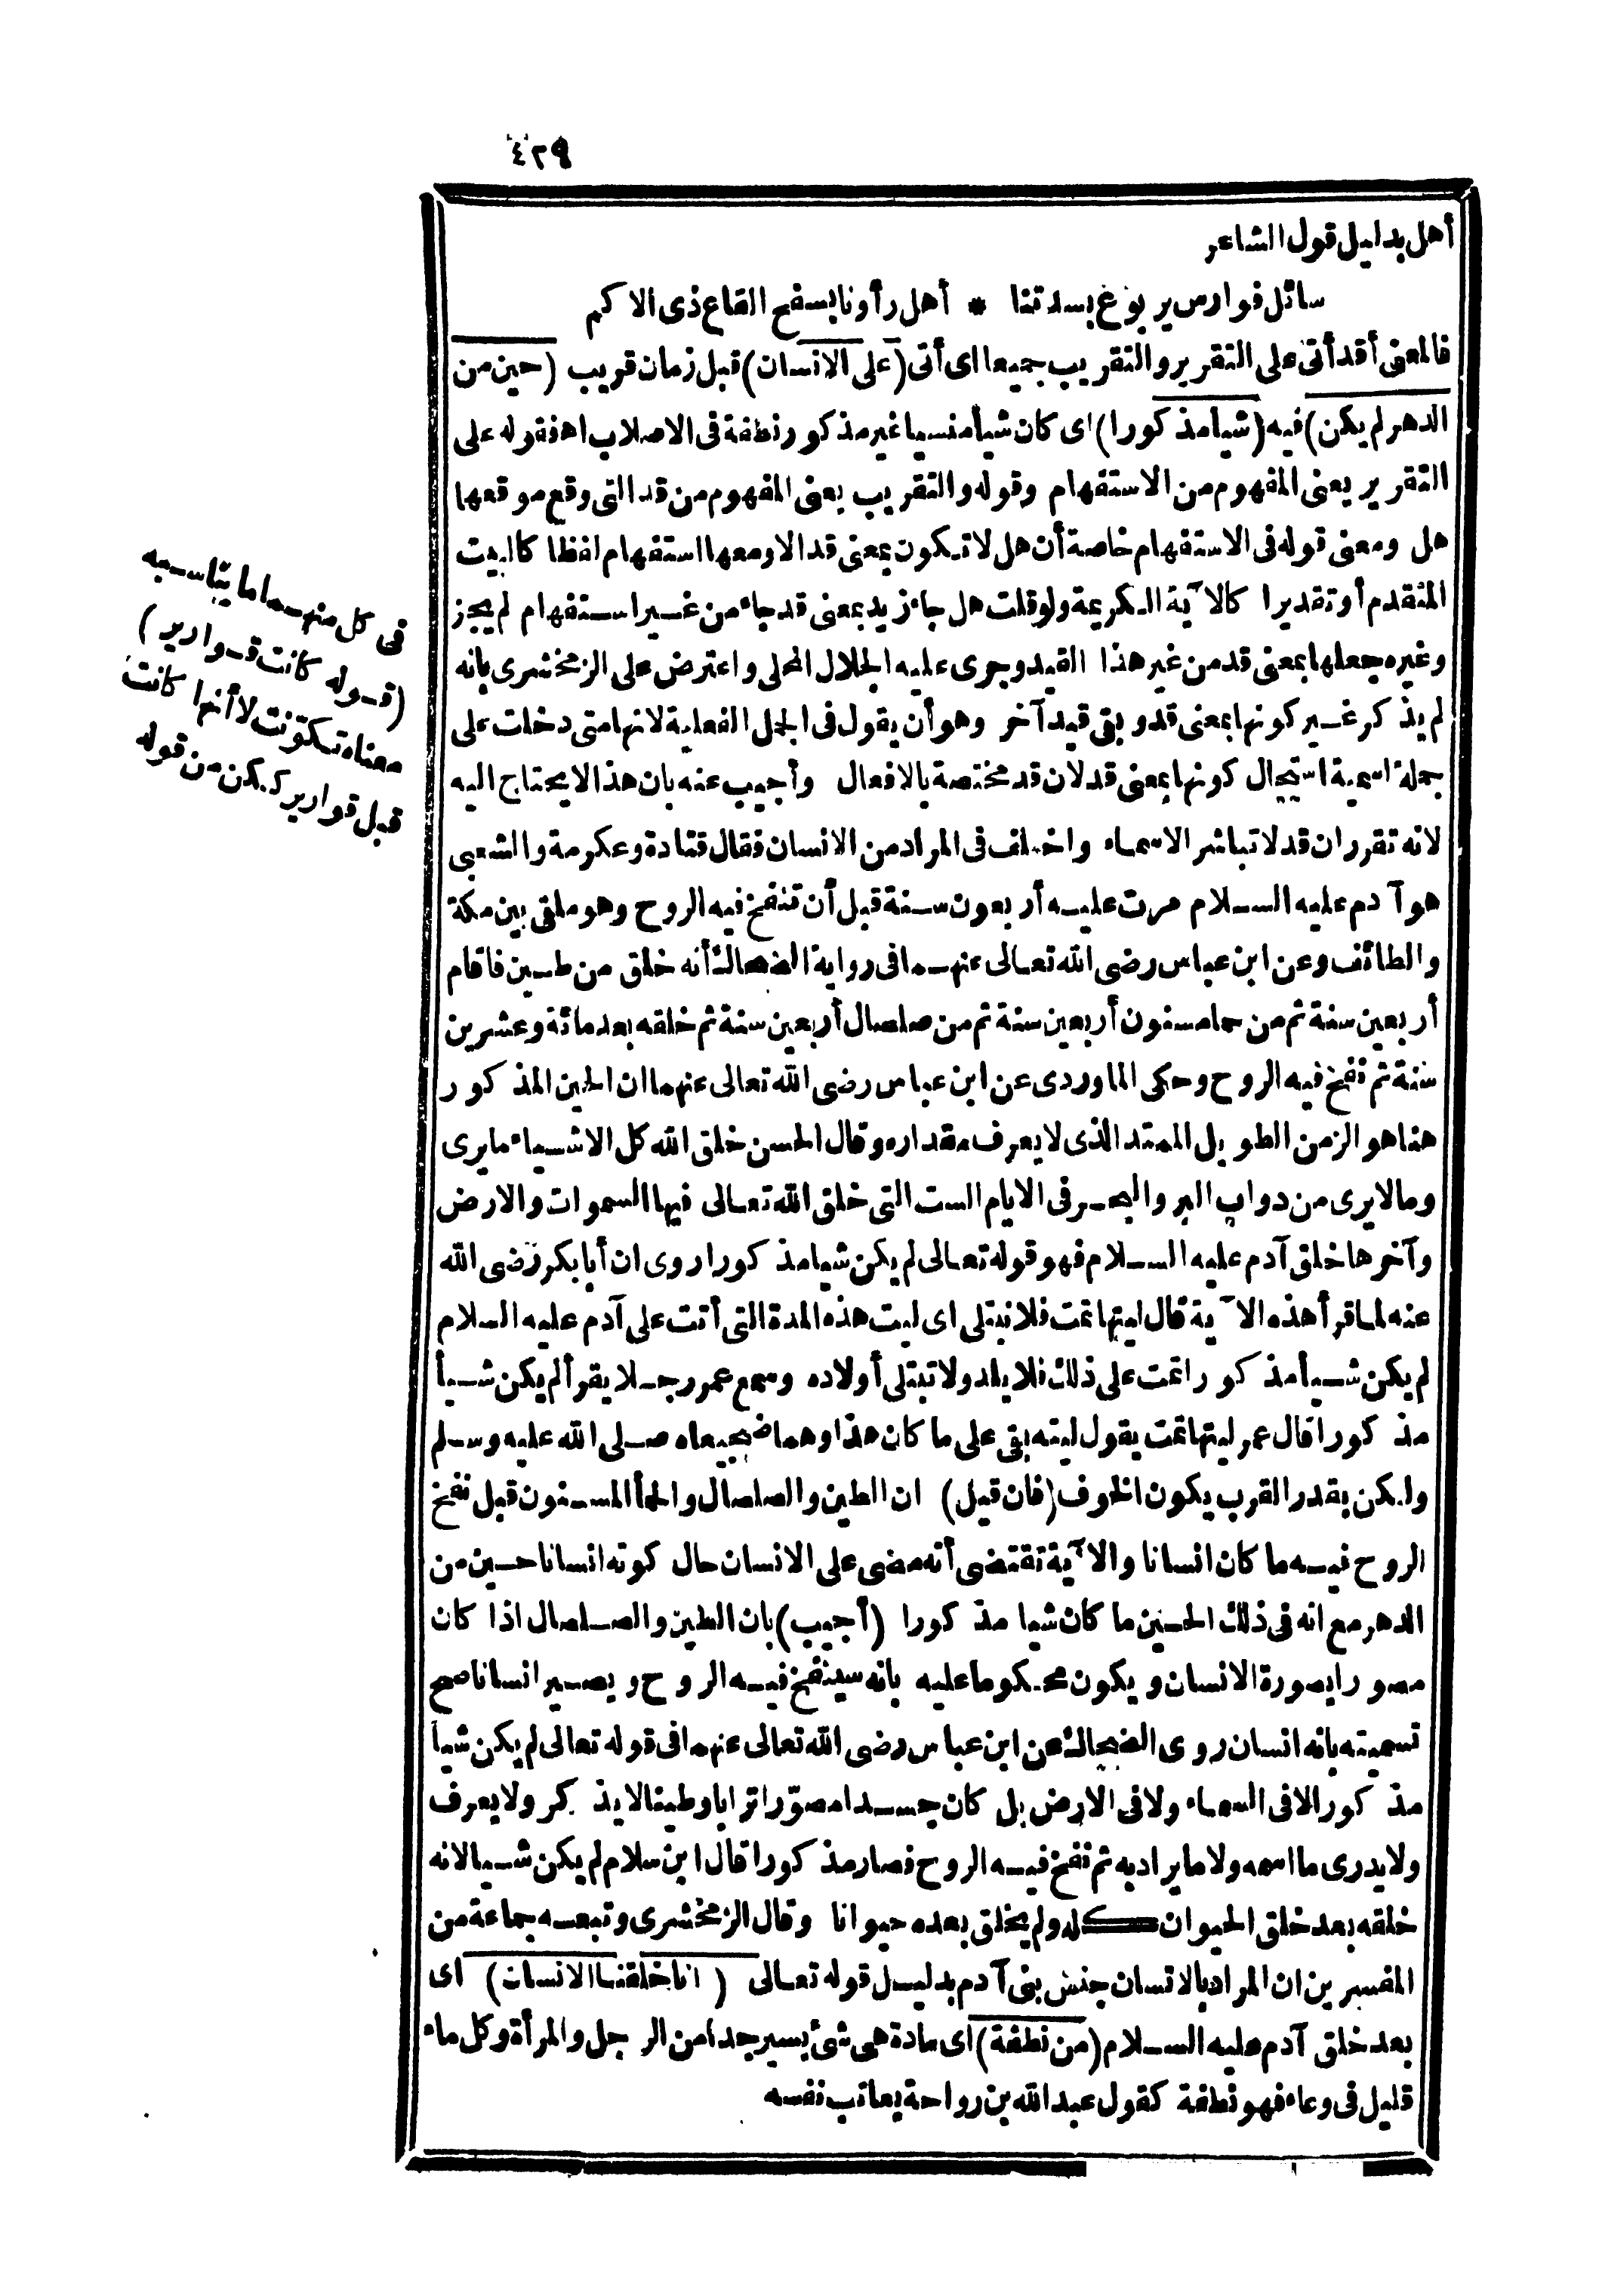 ٤٢٩
أهل بدليل قول الشاعر
سائل فوارس يربوع بسدتنا * أهل رأونا بسفح القاع ذى الاكم
فالمعنى أقد أتى على التقرير والتقريب جميعا اى أتى (على الانسان) قبل زمان قريب (حين من
الدهر لم يكن) فيه (شيأ مذكورا) اى كان شيأ منسيا غير مذكور نطفة فى الاصلاب اه فقوله على
التقرير يعنى المفهوم من الاستفهام وقوله والتقريب يعنى المفهوم من قد التى وقع موقعها
هل ومعنى قوله فى الاستفهام خاصة أن هل لا تكون بمعنى قد الا ومعها استفهام لفظا كالبيت
المتقدم أو تقديرا كالآية الكريمة ولو قلت هل جاء زيد بمعنى قد جاء من غير استفهام لم يجز
وغيره جعلها بمعنى قد من غير هذا القيد وجرى عليه الجلال المحلى واعترض على الزمخشرى بانه
لم يذكر غير كونها بمعنى قد وبقى قيد آخر وهو أن يقول فى الجمل الفعلية لانها متى دخلت على
جملة اسمية استحال كونها بمعنى قد لان قد مختصة بالافعال وأجيب عنه بان هذا لا يحتاج اليه
لانه تقرر ان قد لا تباشر الاسماء واختلف فى المراد من الانسان فقال قتادة وعكرمة والشعبى
هو آدم عليه السلام مرت عليه أربعون سنة قبل أن تنفخ فيه الروح وهو ملقى بين مكة
والطائف وعن ابن عباس رضى الله تعالى عنهما فى رواية الضحاك أنه خلق من طين فاقام
أربعين سنة ثم من حمامسنون أربعين سنة ثم من صلصال أربعين سنة ثم خلقه بعد مائة وعشرين
سنة ثم نفخ فيه الروح وحكى الماوردى عن ابن عباس رضى الله تعالى عنهما ان الحين المذكور
هنا هو الزمن الطويل الممتد الذى لا يعرف مقداره وقال الحسن خلق الله كل الاشياء ما يرى
وما لا يرى من دواب البر والبحر فى الايام الست التى خلق الله تعالى فيها السموات والارض
وآخر ها خلق آدم عليه السلام فهو قوله تعالى لم يكن شيا مذكورا روى ان أبا بكر رضى الله
عنه لما قرأ هذه الآية قال ليتها تمت فلا نبتلى اى ليت هذه المدة التى أتت على آدم عليه السلام
لم يكن شيأ مذكورا تمت على ذلك فلا يلد ولا تبتلى أولاده وسمع عمر رجلا يقرأ لم يكن شيأ
مذكورا قال عمر ليتها تمت يقول ليته بقى على ما كان هذا وهما ضجيعاه صلى الله عليه وسلم
ولكن بقدر القرب يكون الخوف (فان قيل) ان الطين والصلصال والحمأ المسنون قبل نفخ
الروح فيه ما كان انسانا والآية تقتضى أنه مضى على الانسان حال كونه انسانا حين من
الدهر مع انه فى ذلك الحين ما كان شيا مذكورا (أجيب) بان الطين والصلصال اذا كان
مصورا بصورة الانسان ويكون محكوما عليه بانه سينفخ فيه الروح ويصير انسانا صح
تسميته بانه انسان روى الضحاك عن ابن عباس رضى الله تعالى عنهما فى قوله تعالى لم يكن شيأ
مذكورا لا فى السماء ولا فى الارض بل كان جسدا مصوّرا ترابا وطينا لا يذكر ولا يعرف
ولا يدرى ما اسمه ولا ما يراد به ثم نفخ فيه الروح فصار مذكورا قال ابن سلام لم يكن شيا لانه
خلقه بعد خلق الحيوان كله ولم يخلق بعده حيوانا وقال الزمخشرى وتبعه جماعة من
المفسرين ان المراد بالانسان جنس بنى آدم بدليل قوله تعالى (انا خلقنا الانسان) اى
بعد خلق آدم عليه السلام (من نطفة) اى مادة هى شئ يسير جدا من الرجل والمرأة وكل ماء
قليل فى وعاء فهو نطفة كقول عبد الله بن رواحة يعاتب نفسه
فى كل منهما ما يناسبه
(قوله كانت قوارير)
معناه تكوّنت لا أنها كانت
قبل قوارير ككن من قوله